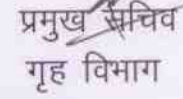 प्रमुख सचिव
गृह विभाग